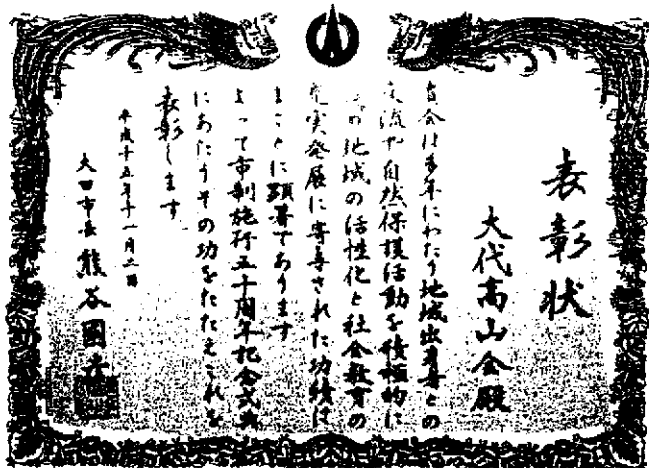 表彰状
大代高山会殿
貴会は多年にわたり地域出身者との
交流や自然保護活動を積極的に
地域の活性化と社会教育の
充実発展に寄与された功績は
まことに顕著であります
よって市制施行五十周年記念式典
にあたりその功をたたえこれを
表彰します
平成十五年十一月三日
大田市長 熊谷國彦